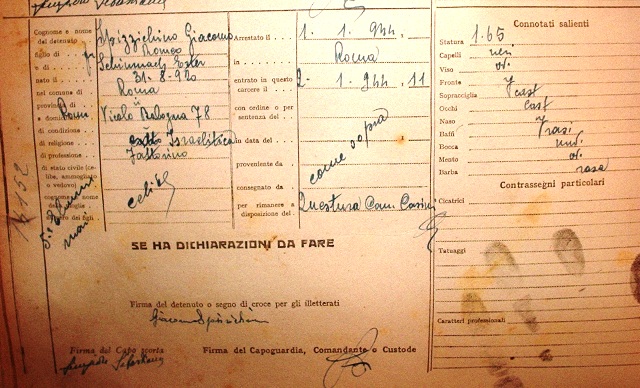 Cognome e nome del detenuto Spizzichino Giacomo
figlio di Romeo
e di Schunnach Ester
nato il 31-8-920
nel comune di Roma
provincia di "
e domiciliato Roma Vicolo Bologna 78
di condizione
di religione Israelitica
di professione Fattorino
di stato civile (celibe, ammogliato o vedovo) celibe
cognome e nome
della moglie
numero dei figli
Arrestato il 1. 1. 944
in Roma
entrato in questo carcere il 2- 1. 944. 11
con ordine o per sentenza del
in data del
proveniente da come sopra
consegnato da
per rimanere a disposizione del Questura
Connotati salienti
Statura 1.65
Capelli neri
Viso ov.
Fronte
Sopracciglia cast
Occhi cast
Naso
Baffi rasi
Bocca
Mento ov.
Barba rasa
Contrassegni particolari
Cicatrici
Tatuaggi
Caratteri professionali
SE HA DICHIARAZIONI DA FARE
Firma del detenuto o segno di croce per gli illetterati
Giacomo Spizzichino
Firma del Capo scorta
Firma del Capoguardia, Comandante o Custode